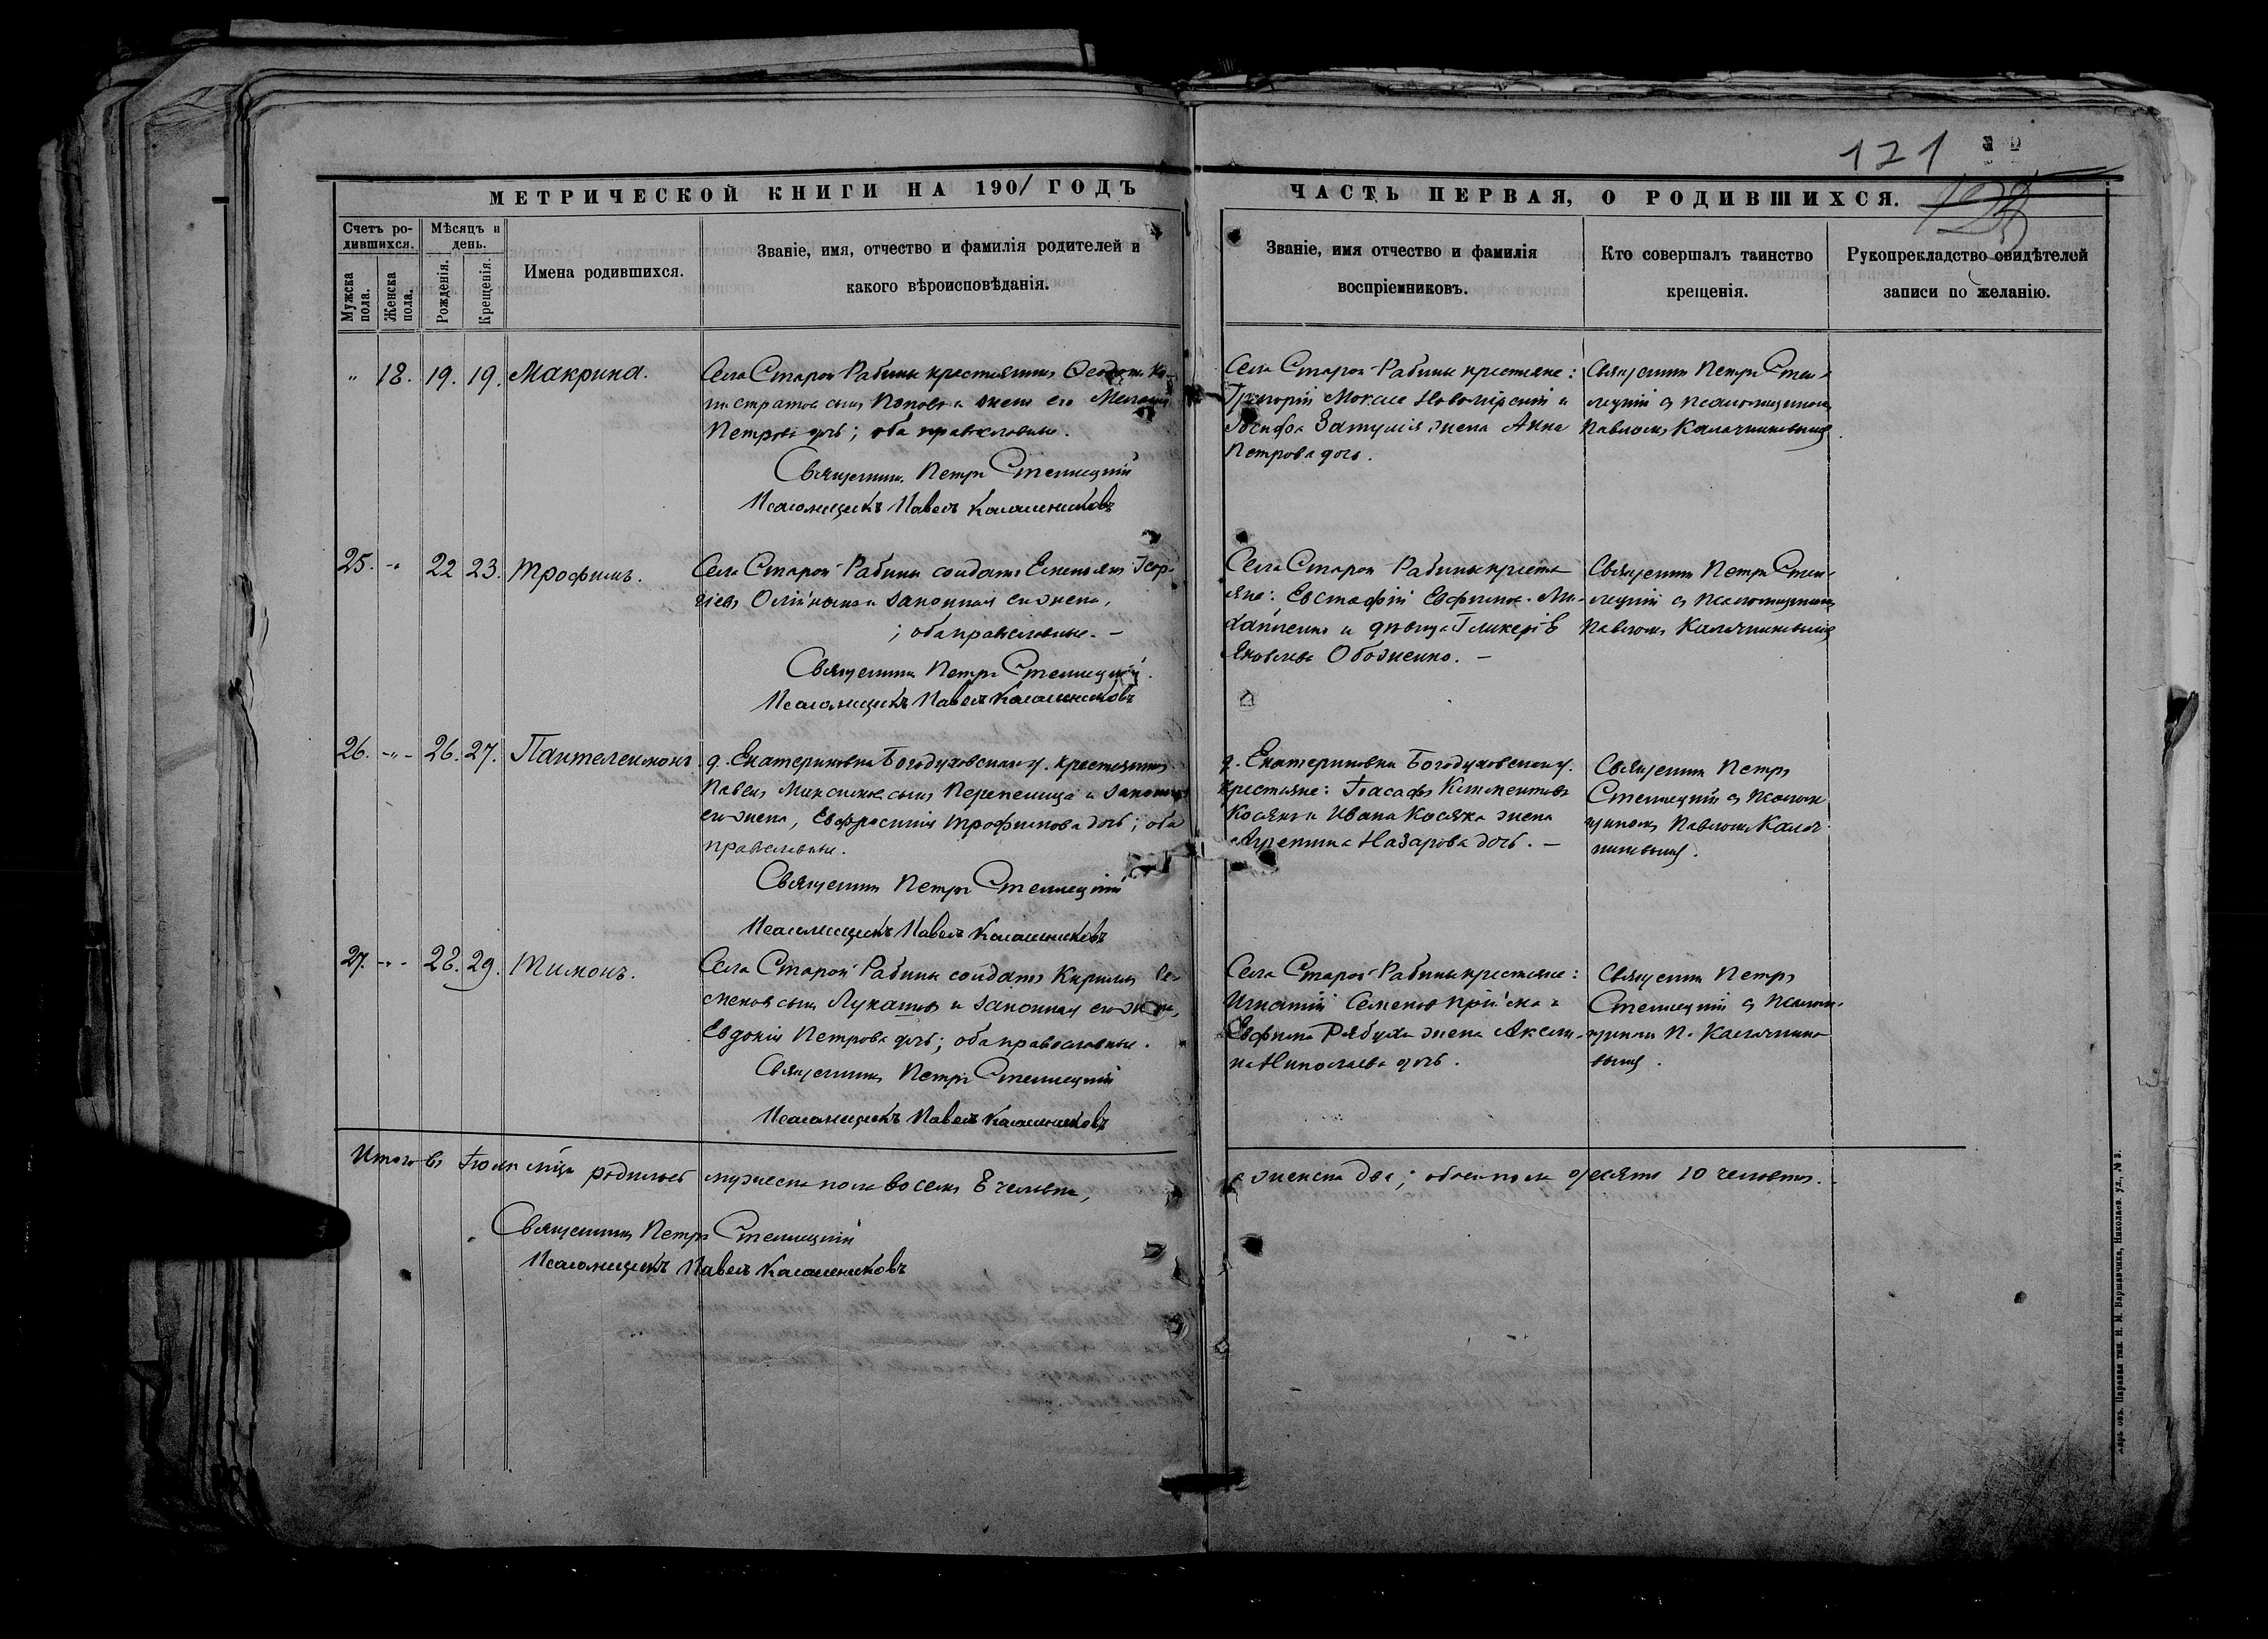 121
МЕТРИЧЕСКОЙ КНИГИ НА 1901 ГОДЪ
ЧАСТЬ ПЕРВАЯ, О РОДИВШИХСЯ.
Счетъ ро-
дившихся.
Мѣсяцъ и
день.
Мужска
пола.
Женска
пола.
Рожденія.
Крещенія.
Имена родившихся.
Званіе, имя, отчество и фамилія родителей и
какого вѣроисповѣданія.
Званіе, имя отчество и фамилія
воспріемниковъ.
Кто совершалъ таинство
крещенія.
Рукоприкладство свидѣтелей
записи по желанію.
" 18. 19. 19. Макрина.
Села Старой Рабины крестьянинъ
сынъ Поповъ и жена его
Петрова дочь; оба православные.
Священникъ Петръ Стеллецкій
Псаломщикъ Павелъ Калашниковъ
Села Старой Рабины крестьяне:
Григорій и
жена Анна
Петрова дочь.
Священникъ Петръ Стел-
лецкій съ псаломщикомъ
Павломъ
25. " 22 23. Трофимъ.
Села Старой Рабины солдатъ Геор-
гіевъ и законная его жена,
; оба православные. –
Священникъ Петръ Стеллецкій.
Псаломщикъ Павелъ Калашниковъ
Села Старой Рабины крестья
яне: Евстафій Ми-
хайленко и дѣвица Гликерія
Яковлева Обоженко. –
Священникъ Петръ Стел-
лецкій съ псаломщикомъ
Павломъ
26. -"- 26. 27. Пантелеимонъ
д. Екатериновки Богодуховскаго у. крестьянинъ
Павелъ сынъ Перепелица и законная
его жена, Евфросинія Трофимова дочь; оба
православные.
Священникъ Петръ Стеллецкій
Псаломщикъ Павелъ Калашниковъ
д. Екатериновки Богодуховскаго у.
крестьяне: Іоасафъ Климентовъ
Косякъ и Ивана Косяка жена
Агрепина Назарова дочь. –
Священникъ Петръ
Стеллецкій съ псалом
щикомъ Павломъ
27. -"- 28. 29. Тимонъ.
Села Старой Рабины солдатъ Кириллъ Се-
меновъ сынъ Лукашовъ и законная его жена,
Евдокія Петрова дочь; оба православные.
Священникъ Петръ Стеллецкій
Псаломщикъ Павелъ Калашниковъ
Села Старой Рабины крестьяне:
Игнатій Семеновъ
Евфима Рябухи жена Аксин-
на Николаева дочь.
Священникъ Петръ
Стеллецкій съ псалом-
щикомъ П.
Итого въ Іюлѣ мцѣ родилось мужеска пола восемь 8 человѣкъ,
а женска два; обоего пола десять 10 человѣкъ.
Священникъ Петръ Стеллецкій
Псаломщикъ Павелъ Калашниковъ
Паровая тип. И. М. Варшавчика, Николаев. ул., № 3.